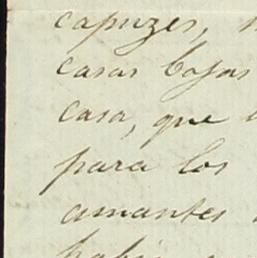 capuzes,
casas bajas
casa, que
para los
amantes